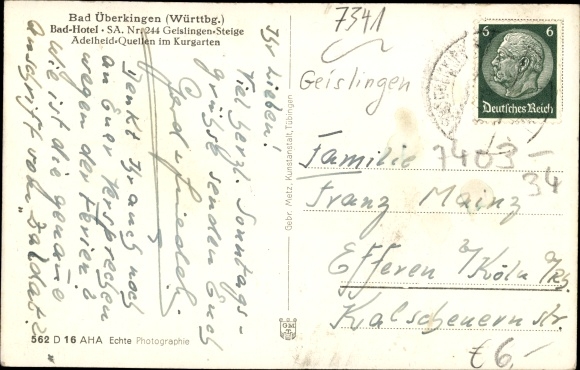 Bad Überkingen (Württbg.)
Bad-Hotel · SA. Nr. 244 Geislingen-Steige
Adelheid-Quellen im Kurgarten
7341
Geislingen
6 6
Deutsches Reich
Ihr Lieben!
Viel herzl. Sonntags-
grüße senden Euch
Gerd u. Friedel.
Denkt Ihr auch noch
an Euer Versprechen
wegen der Ferien?
Wie ist die genaue
Anschrift vom
Gebr. Metz, Kunstanstalt, Tübingen
Familie 7403-
34
Franz Mainz
Efferen b/Köln a/Rh.
Kalscheuernstr.
€6,-
562 D 16 AHA Echte Photographie